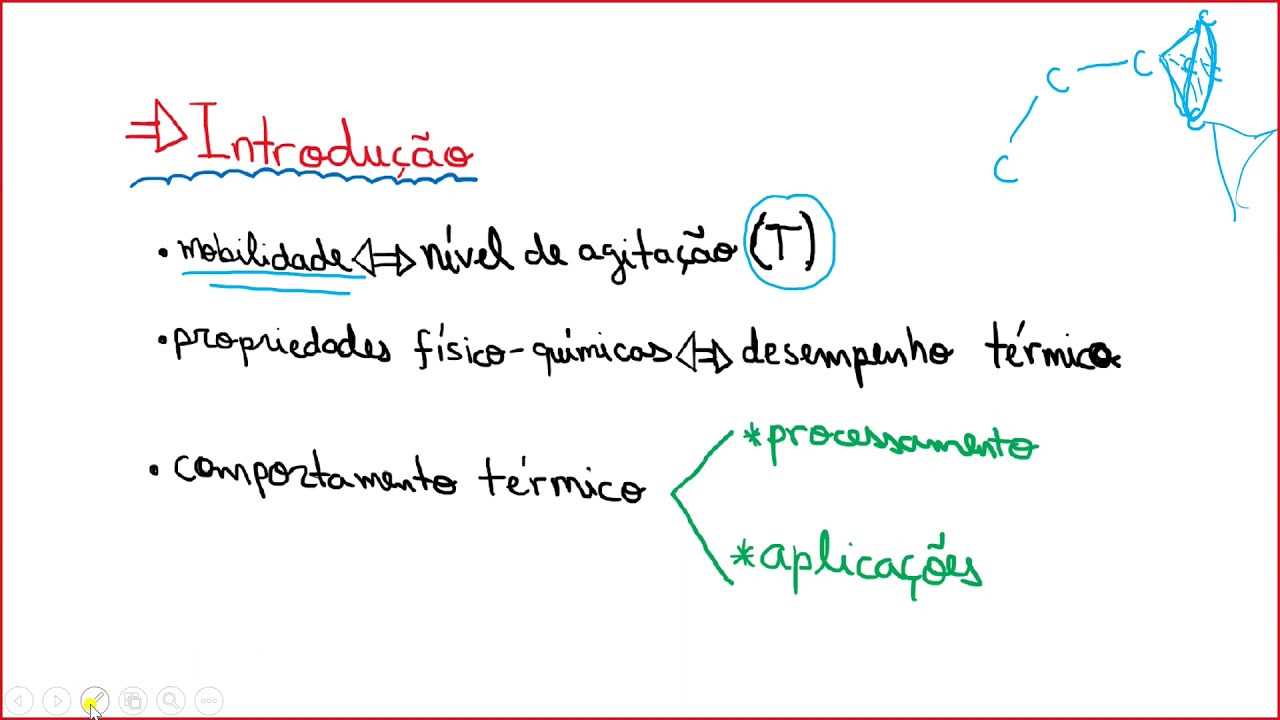 ⇒ Introdução
• mobilidade ⇔ nível de agitação (T)
• propriedades físico-químicas ⇔ desempenho térmico
• comportamento térmico
* processamento
* aplicações
C
C — C
C
C
C